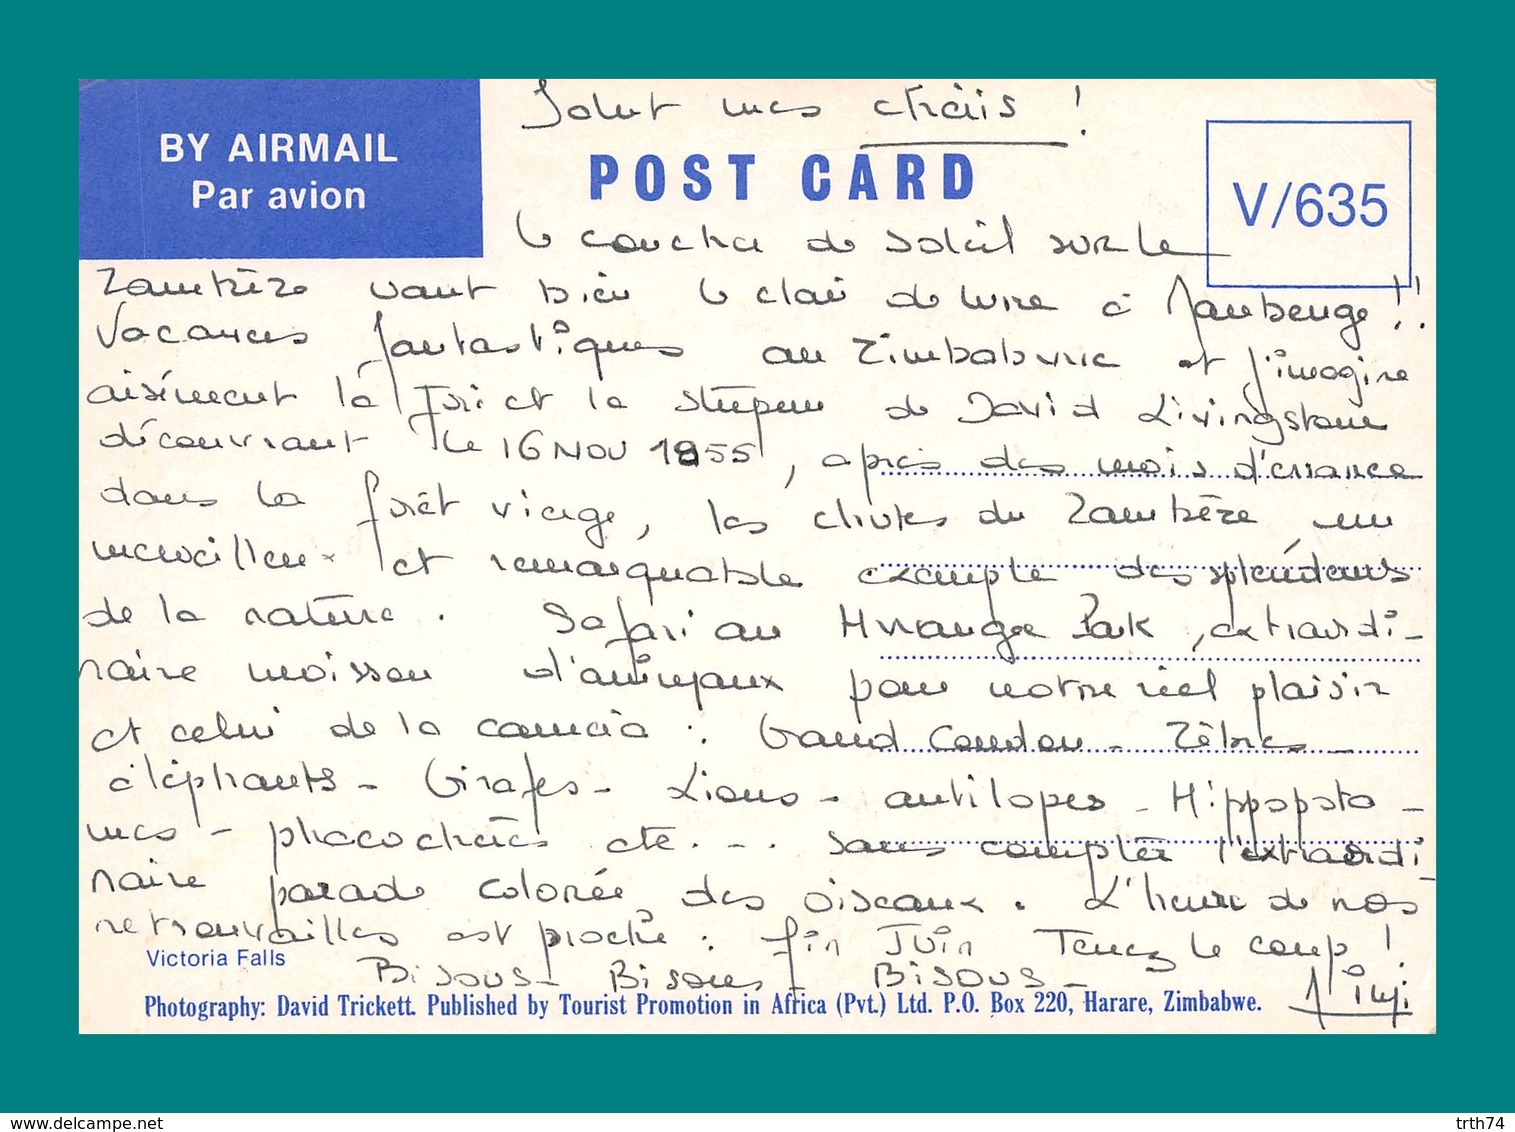 Salut mes chéris !
BY AIRMAIL
Par avion
POST CARD
V/635
Le coucher de soleil sur le
Zambèze vaut bien le clair de lune à Maubeuge !!
Vacances fantastiques au Zimbabwe et j'imagine
aisément la joie et la stupeur de David Livingstone
découvrant le 16 NOV 1855, après des mois d'errance
dans la forêt vierge, les chutes du Zambèze, un
merveilleux et remarquable exemple des splendeurs
de la nature. Safari au Hwange Park, extraordi-
naire moisson d'animaux pour notre réel plaisir
et celui de la caméra : Grand Coudou - Zèbres -
éléphants - Girafes - Lions - antilopes - Hippopota-
mes - phacochères etc... sans compter l'extraordi-
naire parade colorée des oiseaux. L'heure de nos
retrouvailles est proche : fin Juin Tenez le coup !
Victoria Falls
Bisous - Bisous - Bisous -
Photography: David Trickett. Published by Tourist Promotion in Africa (Pvt.) Ltd. P.O. Box 220, Harare, Zimbabwe.
www.delcampe.net
trth74